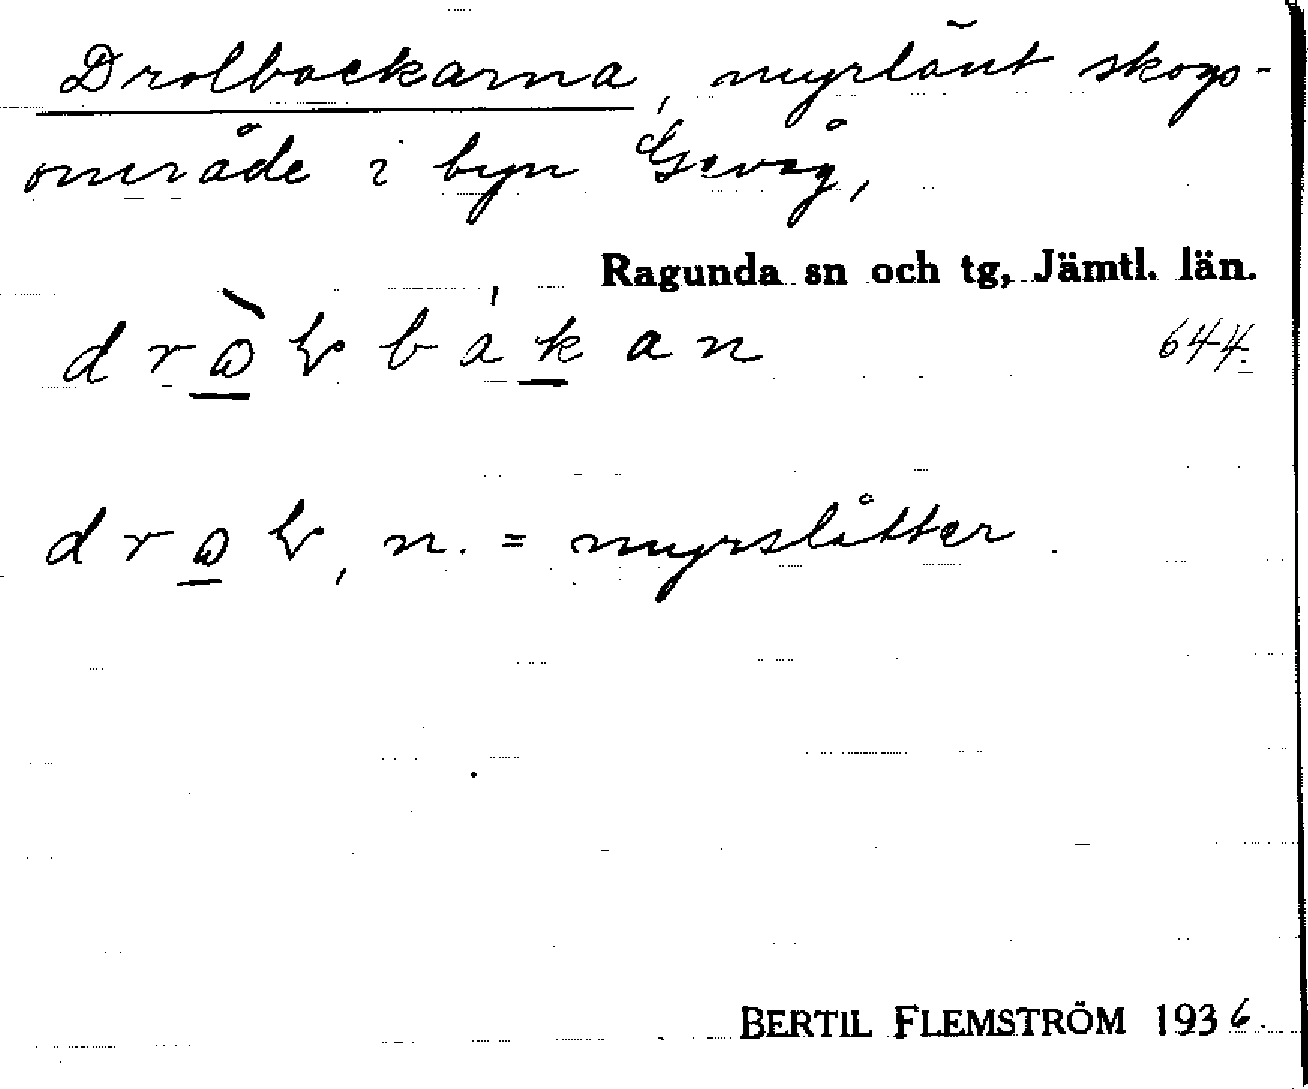 Drolbackarna, myrlänt skogs-
område i byn Gevåg,
Ragunda sn och tg, Jämtl. län.
644.
n. = myrslåtter.
BERTIL FLEMSTRÖM 1936.